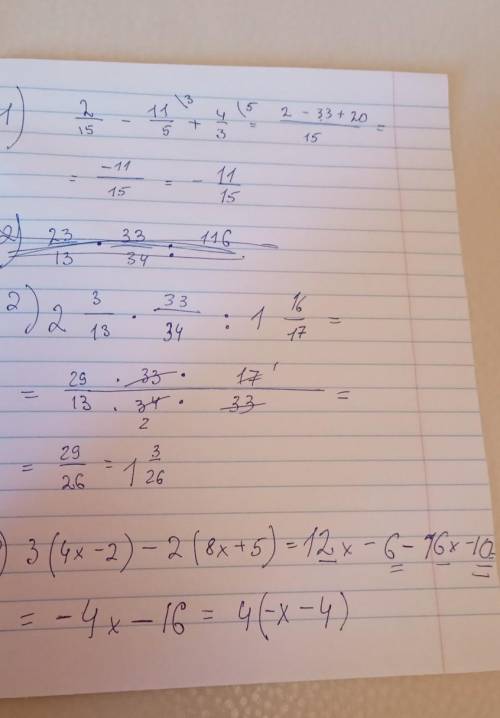 1) 2/15 - 11/5 \3 + 4/3 \5 = (2 - 33 + 20)/15 =
= -11/15 = - 11/15
2) 23/13 · 33/34 · 116
2) 2 3/13 · 33/34 : 1 16/17 =
= (29 · 33 · 17 1)/(13 · 34 2 · 33) =
= 29/26 = 1 3/26
) 3(4x-2) - 2(8x+5) = 12x - 6 - 16x - 10
= -4x - 16 = 4(-x-4)